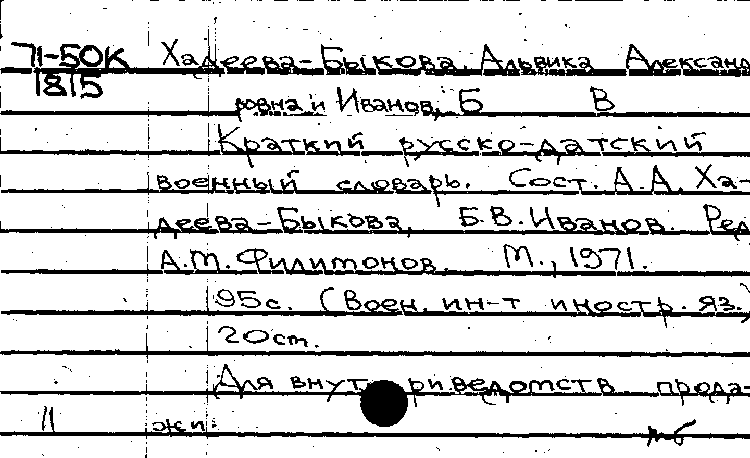 71-50К Хадеева-Быкова, Альвика Александ
1815
ровна и Иванов, Б В
Краткий русско-датский
военный словарь. Сост. А.А. Ха-
деева-Быкова, Б.В. Иванов. Ред
А.М. Филимонов. М., 1971.
95с. (Воен. ин-т иностр. яз.)
20см.
Для внутриведомств. прода-
11 жи.